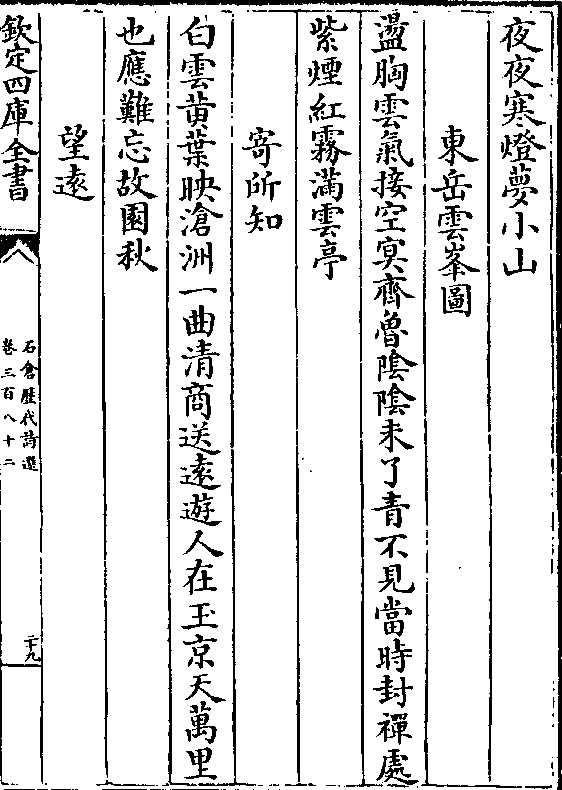 夜夜寒燈夢小山
東岳雲峯圖
盪胸雲氣接空冥齊魯陰陰未了青不見當時封禪處
紫煙紅霧滿雲亭
寄所知
白雲黄葉映滄洲一曲清商送遠遊人在玉京天萬里
也應難忘故園秋
望遠
欽定四庫全書
石倉歴代詩選
卷三百八十二
二十九